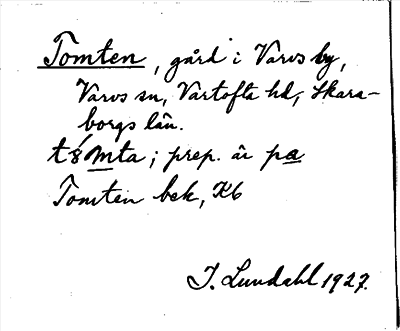 Tomten, gård i Varvs by,
Varvs sn, Vartofta hd, Skara-
borgs län.
prep. är pa
Tomten bek, Kb
I. Lundahl 1927.